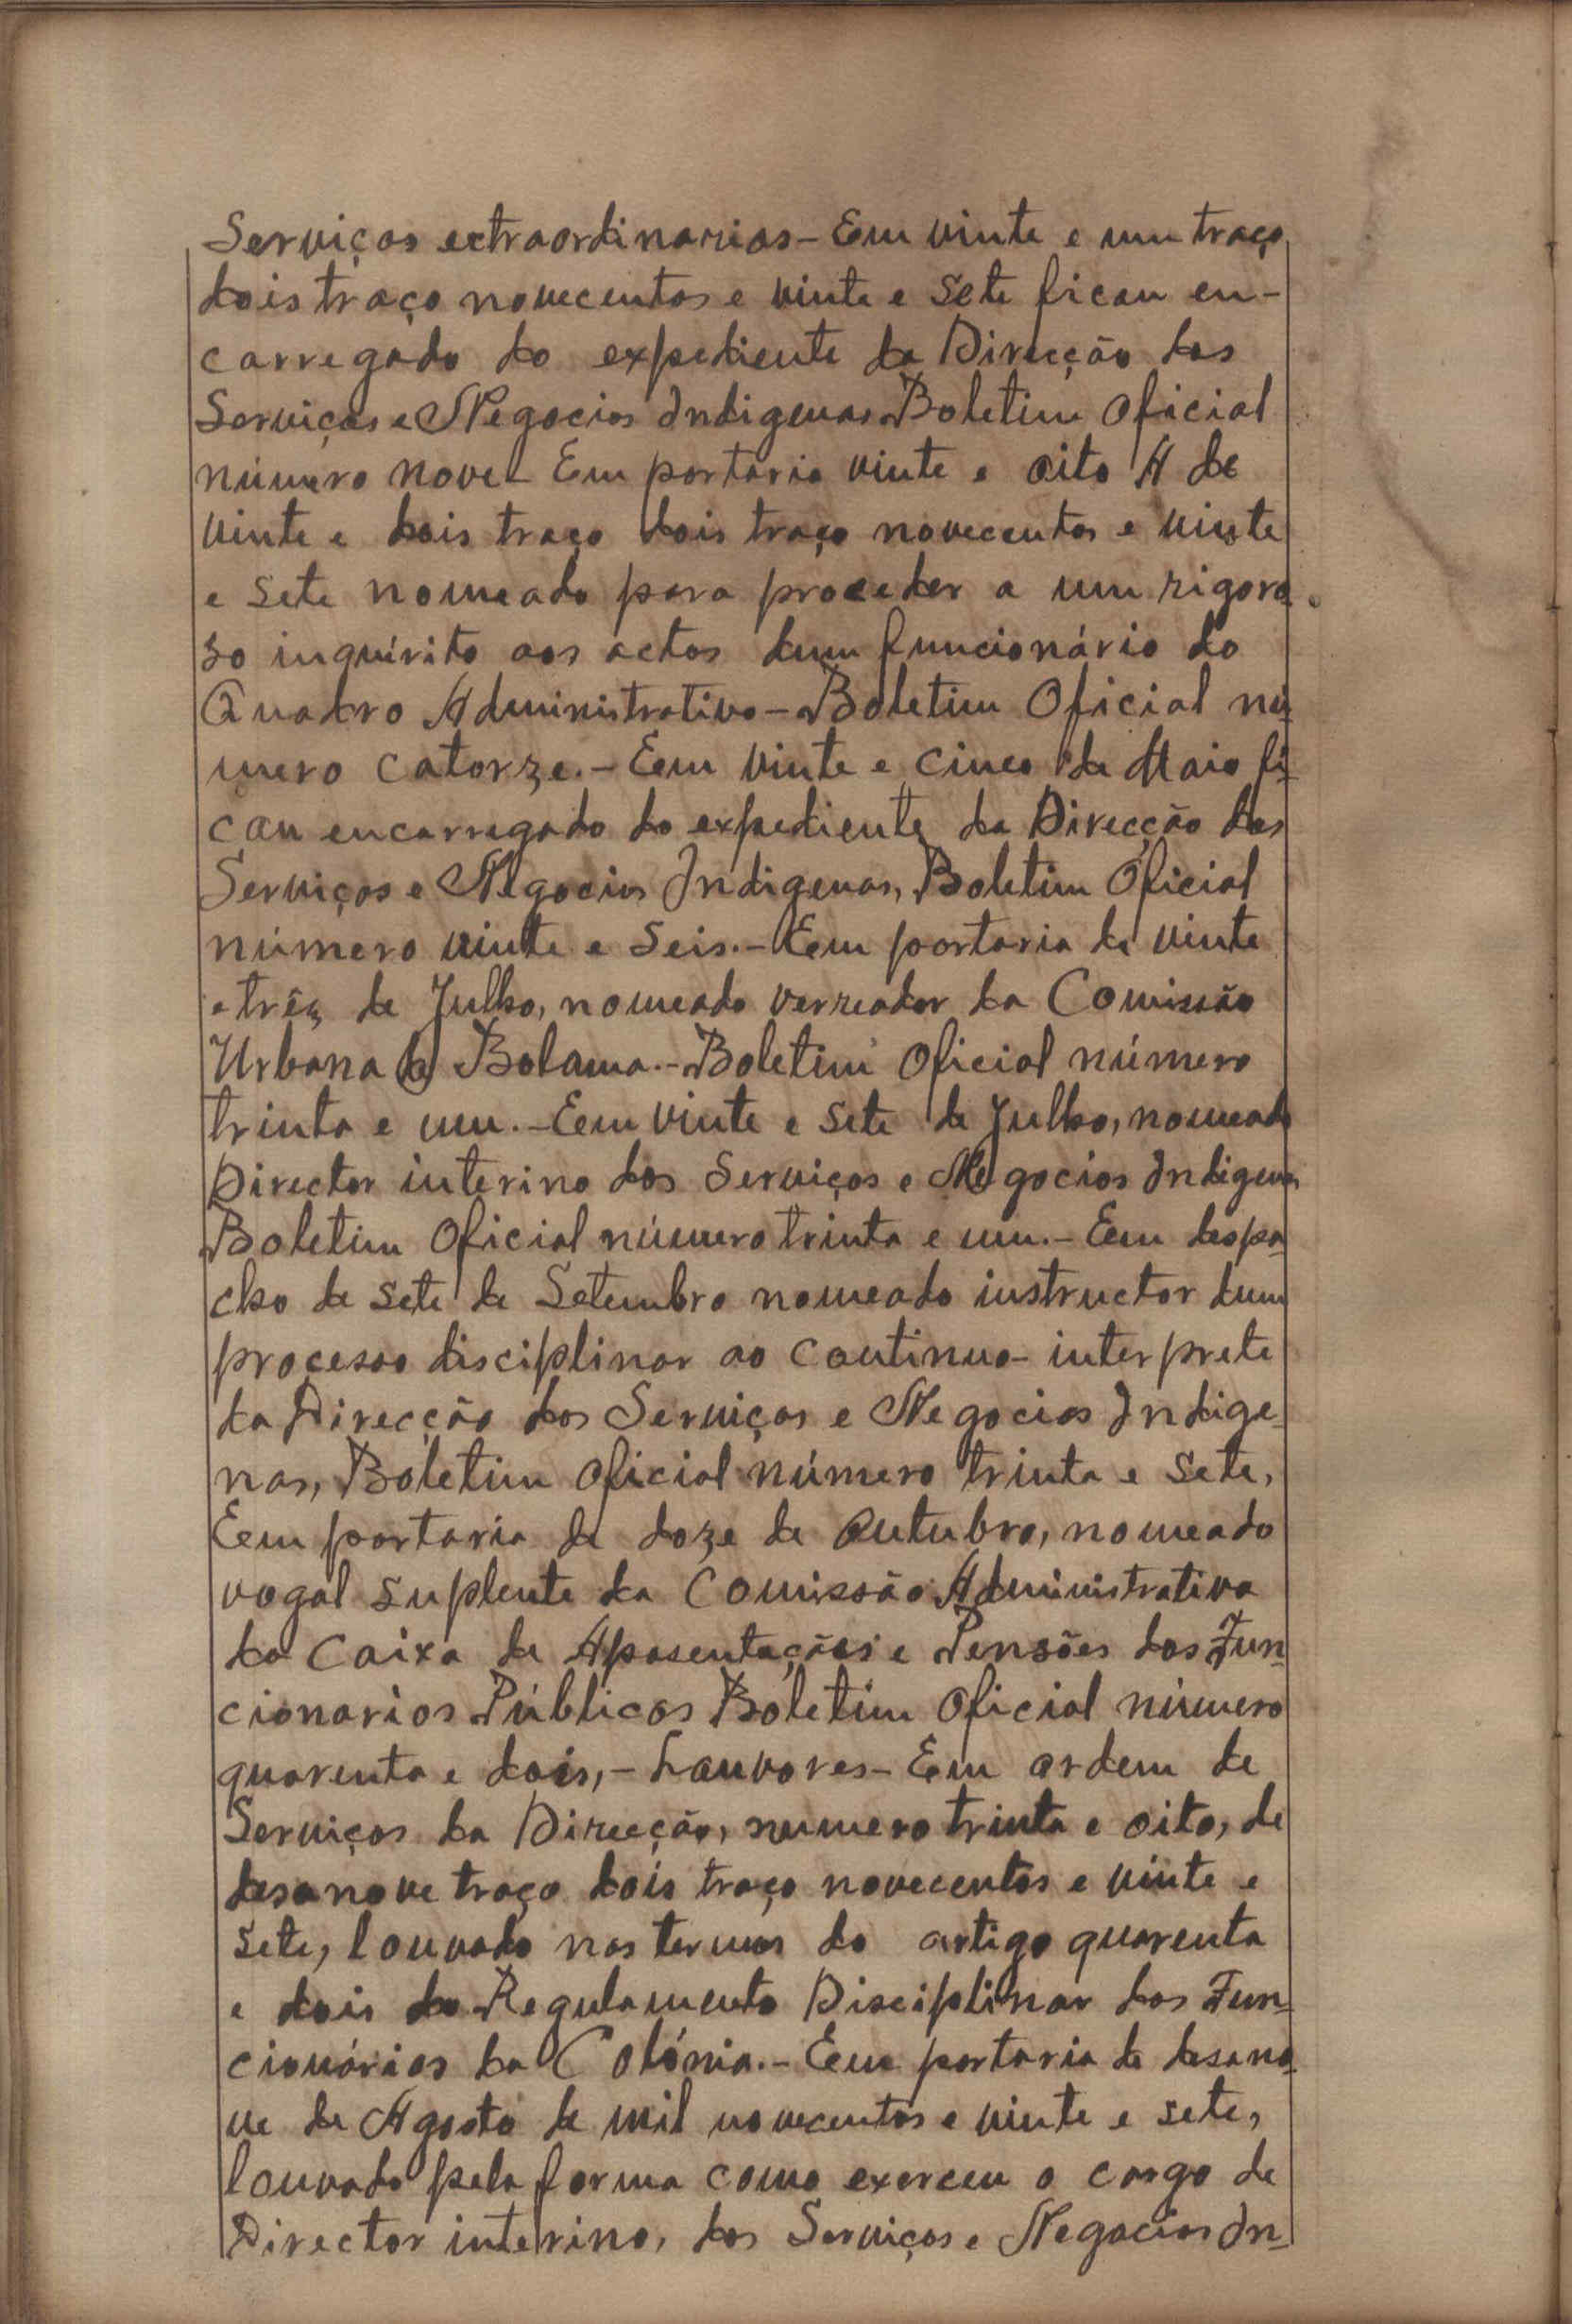 Serviços extraordinarios - Em vinte e um traço
dois traço novecentos e vinte e sete ficou en-
carregado do expediente da Direcção dos
Serviços e Negocios Indigenas Boletim Oficial
número nove - Em portaria vinte e oito A de
vinte e dois traço dois traço novecentos e vinte
e sete nomeado para proceder a um rigoro-
so inquérito aos actos dum funcionário do
Quadro Administrativo - Boletim Oficial nú-
mero catorze. - Em vinte e cinco de Maio fi-
cou encarregado do expediente da Direcção dos
Serviços e Negocios Indigenas, Boletim Oficial
número vinte e seis. - Em portaria de vinte
e três de Julho, nomeado verreador da Comissão
Urbana de Bolama. - Boletim Oficial número
trinta e um. - Em vinte e sete de Julho, nomeado
Director interino dos Serviços e Negocios Indigenas
Boletim Oficial número trinta e um. - Em despa-
cho de sete de Setembro nomeado instructor dum
processo disciplinar ao continuo-interprete
da Direcção dos Serviços e Negocios Indige-
nas, Boletim Oficial número trinta e sete,
Em portaria de doze de Outubro, nomeado
vogal suplente da Comissão Administrativa
da Caixa de Aposentações e Pensões dos Fun-
cionarios Públicos Boletim Oficial número
quarenta e dois, - Louvores - Em ordem de
Serviços da Direcção, numero trinta e oito, de
desanove traço dois traço novecentos e vinte e
sete, louvado nos termos do artigo quarenta
e dois do Regulamento Disciplinar dos Fun-
cionários da Colónia. - Em portaria de desano-
ve de Agosto de mil novecentos e vinte e sete,
louvado pela forma como exerceu o cargo de
Director interino, dos Serviços e Negocios In-